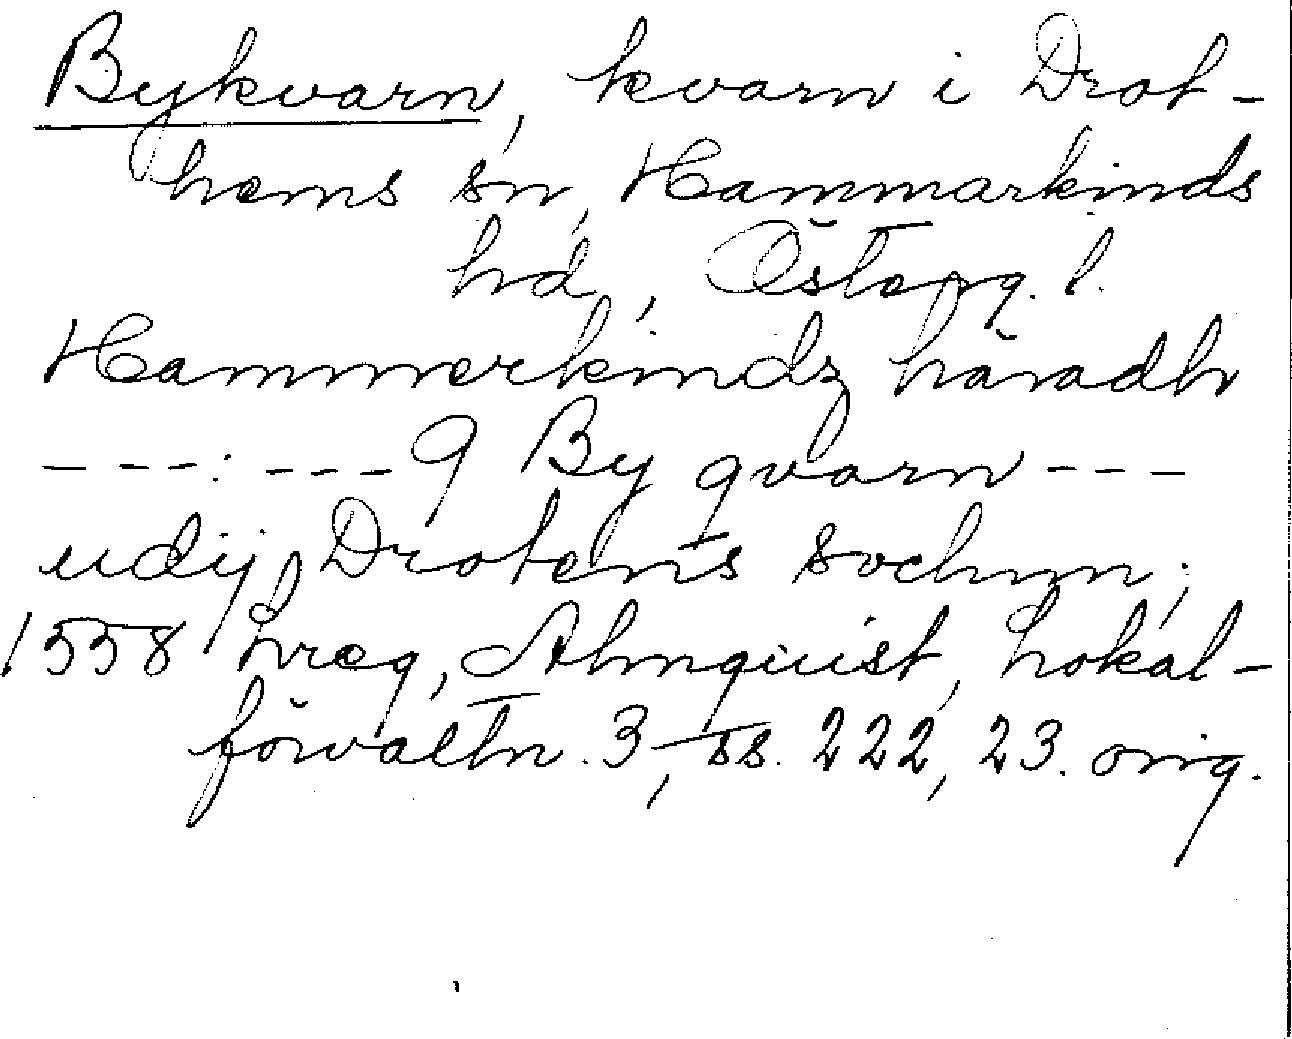 Bykvarn, kvarn i Drot-
hems sn, Hammarkinds
hd, Österg. l.
Hammerkindz häradh
----: --- 9 By qvarn ---
udij Drotens sochnn;
1558 hreg, Almquist, Lokal-
förvaltn. 3, ss. 222, 23. orig.